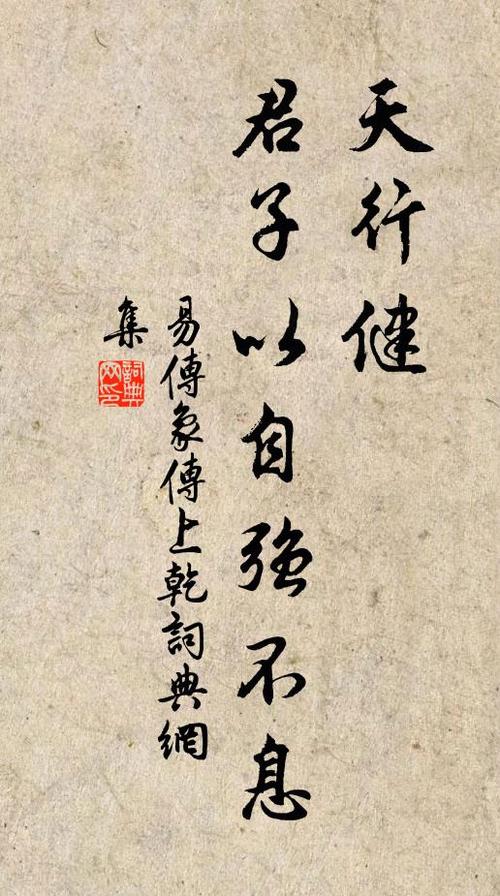 天行健
君子以自強不息
易傳象傳上乾詞典網
集
詞典
网印